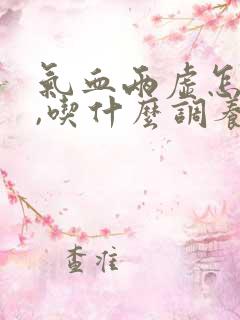 氣血兩虛怎
,喫什麼調養
查準